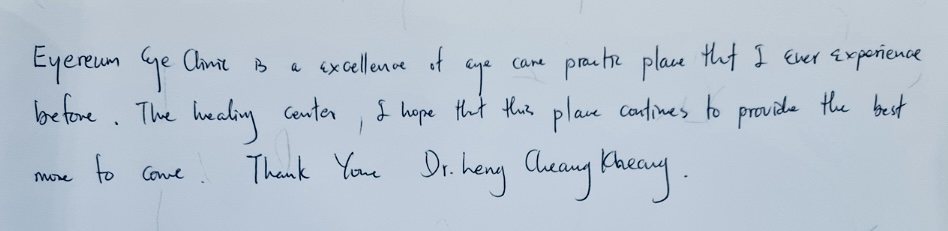 Eyereum Eye Clinic is a excellence of eye care practice place that I ever experience
before. The healing center, I hope that this place contines to provide the best
more to come. Thank You Dr. heng Cheang Kheang.